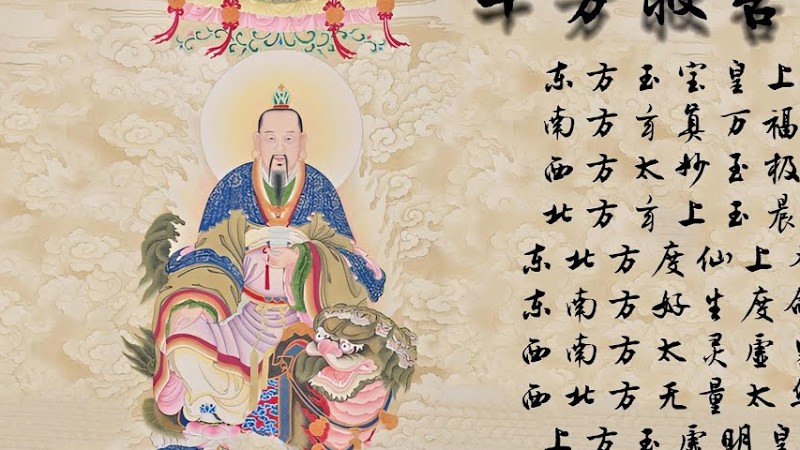 十方救苦
东方玉宝皇上
南方玄真万福
西方太妙至极
北方玄上玉晨
东北方度仙上
东南方好生度
西南方太灵虚
西北方无量太
上方玉虚明皇